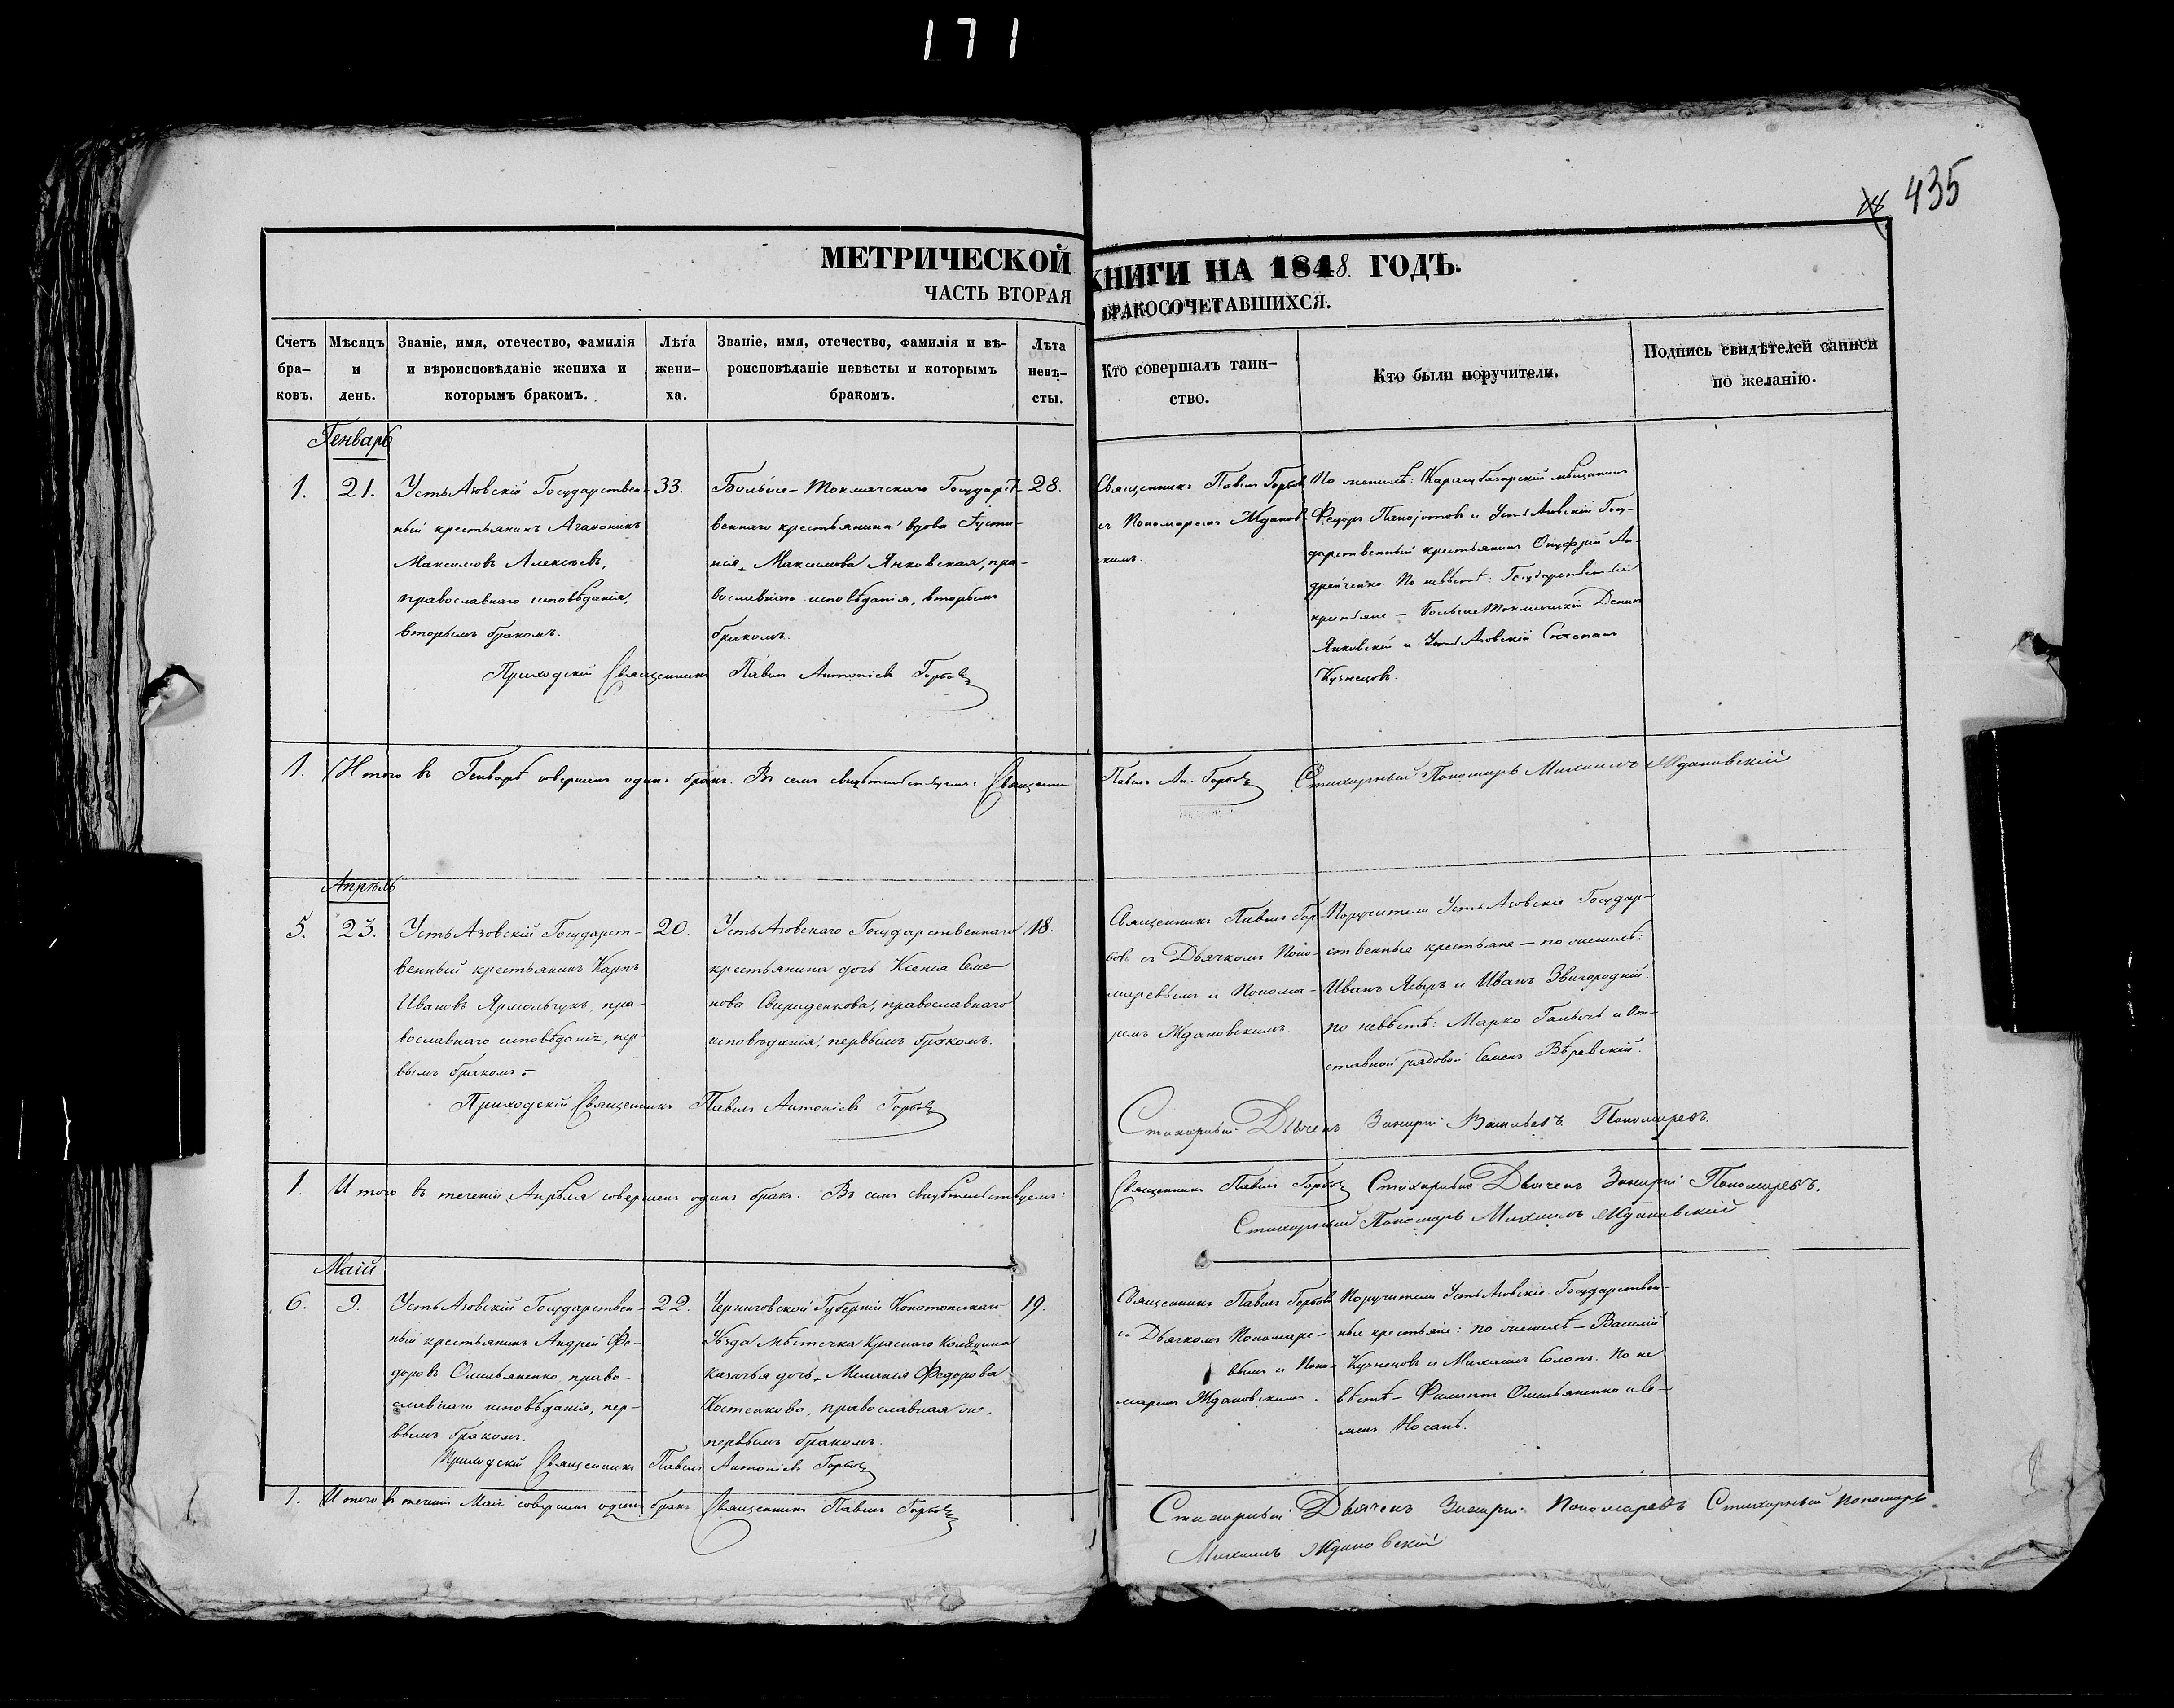 171
435
МЕТРИЧЕСКОЙ КНИГИ НА 1848. ГОДЪ.
ЧАСТЬ ВТОРАЯ О БРАКОСОЧЕТАВШИХСЯ.
Счетъ бра-
ковъ.
Мѣсяцъ
и
день.
Званіе, имя, отечество, фамилія
и вѣроисповѣданіе жениха и
которымъ бракомъ.
Лѣта
жени-
ха.
Званіе, имя, отечество, фамилія и вѣ-
роисповѣданіе невѣсты и которымъ
бракомъ.
Лѣта
невѣ-
сты.
Кто совершалъ таин-
ство.
Кто были поручители.
Подпись свидѣтелей записи
по желанію.
Генварь
1.
21.
Усть Азовскій Государствен-
ный крестьянинъ Агафоникъ
Максимовъ Алексѣевъ,
православнаго исповѣданія,
вторымъ бракомъ.
33.
Больше-Токмачскаго Государст-
веннаго крестьянина вдова Іусти-
нія Максимова Янковская, пра-
вославнаго исповѣданія, вторымъ
бракомъ.
28.
Священникъ Павелъ Горбов
съ Пономаремъ Жданов-
скимъ.
По женихѣ: Карасубазарскій мѣщанинъ
Федоръ Панаіотовъ и Усть Азовскій Госу-
дарственный крестьянинъ Онуфрій Ан-
дрейченко. По невѣстѣ: Государственные
крестьяне – Больше Токмачскій Денисъ
Янковскій и Усть Азовскій Степанъ
Кузнецовъ.
Приходскій Священникъ Павелъ Антоніевъ Горбовъ
1.
Итого въ Генварѣ совершенъ одинъ бракъ. Въ семъ свидѣтельствуемъ: Священникъ
Павелъ Ан. Горбовъ Стихарный Пономарь Михаилъ Ждановскій
Апрѣль
5.
23.
Усть Азовскій Государст-
венный крестьянинъ Карпъ
Ивановъ Ярмольчукъ, пра-
вославнаго исповѣданія, пер-
вымъ бракомъ
20.
Усть Азовскаго Государственнаго
крестьянина дочь Ксенія Семе-
нова Свириденкова, православнаго
исповѣданія, первымъ бракомъ.
18.
Священникъ Павелъ Гор-
бовъ съ Дьячкомъ Поно-
маревымъ и Понома-
ремъ Ждановскимъ.
Поручители Усть Азовскіе Государ-
ственные крестьяне – по женихѣ:
Иванъ и Иванъ Звигородній.
по невѣстѣ: Марко и От-
ставной рядовой Семенъ Вѣревскій.
Приходскій Священникъ Павелъ Антоніевъ Горбовъ
Стихарный Дьячекъ Захарій Васильевъ Пономаревъ.
1.
Итого въ теченіи Апрѣля совершенъ одинъ бракъ. Въ семъ свидѣтельствуемъ:
Священникъ Павелъ Горбовъ Стихарный Дьячекъ Захарій Пономаревъ.
Стихарный Пономарь Михаилъ Ждановскій
Маій
6.
9.
Усть Азовскій Государствен-
ный крестьянинъ Андрей Фе-
доровъ Омельяненко, право-
славнаго исповѣданія, пер-
вымъ бракомъ.
22.
Черниговской Губерніи Конотопскаго
Уѣзда Мѣстечка Краснаго Колядина
казачья дочь Меланія Федорова
Костенкова, православная же,
первымъ бракомъ.
19.
Священникъ Павелъ Горбовъ
съ Дьячкомъ Пономаре-
вымъ и Поно-
маремъ Ждановскимъ.
Поручители Усть Азовскіе Государствен-
ные крестьяне: по женихѣ – Василій
Кузнецовъ и Михаилъ Солопъ. По не-
вѣстѣ – Филиппъ Омельяненко и Се-
менъ Носачь.
Приходскій Священникъ Павелъ Антоніевъ Горбовъ
1.
Итого въ теченіи Маія совершенъ одинъ бракъ. Священникъ Павелъ Горбовъ
Стихарный Дьячекъ Захарій Пономаревъ Стихарный Пономарь
Михаилъ Ждановскій